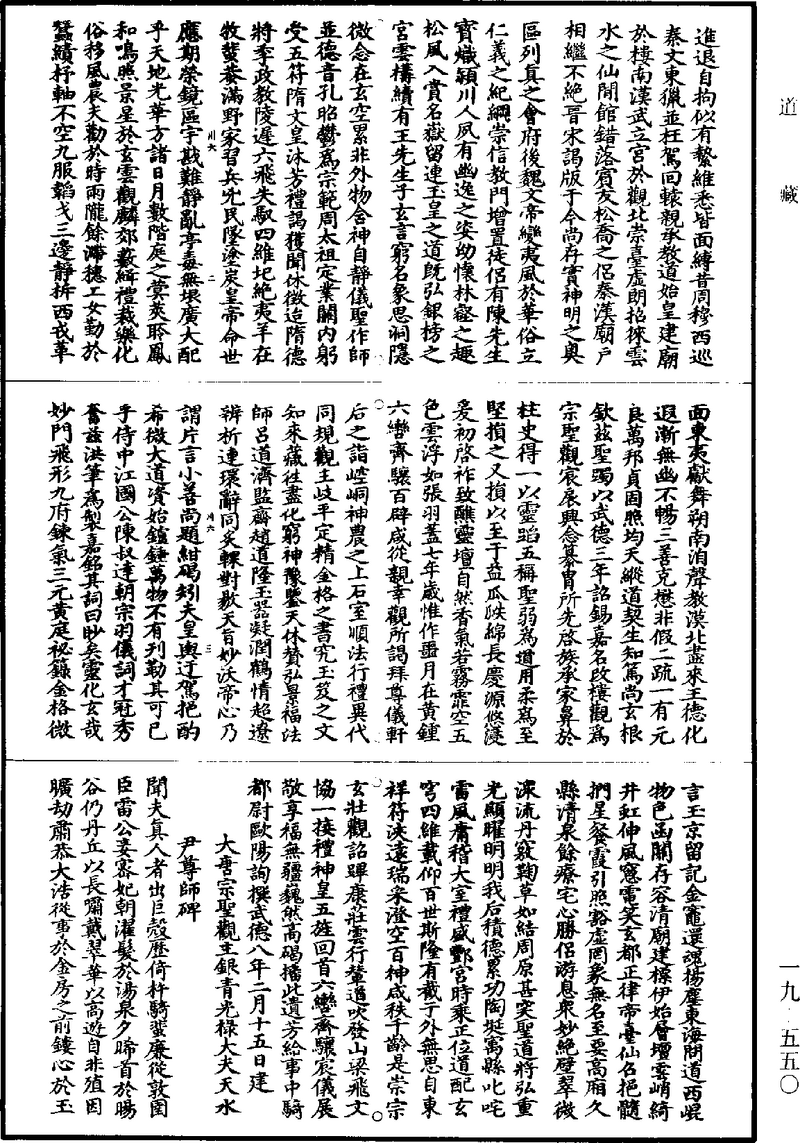 道藏
進退自拘似有繫維悉皆面縛昔周穆西巡
秦文東獵並枉駕回轅親承教道始皇建廟
於樓南漢武立宮於觀北崇臺虛朗招徠雲
水之仙閒館錯落賓友松喬之侶秦漢廟戶
相繼不絕晉宋謁版于今尚存實神明之奧
區列真之會府後魏文帝變夷風於華俗立
仁義之紀綱崇信教門增置徒侶有陳先生
寶熾潁川人夙有幽逸之姿幼懷林壑之趣
松風入賞名嶽留連玉皇之道既弘銀榜之
宮雲構績有王先生子玄言窮名象思洞隱
微念在玄空累非外物含神自靜儀聖作師
並德音孔昭鬱為宗範周太祖定業關內躬
受五符隋文皇沐芳禮謁獲聞休徵迨隋德
將季政教陵遲六飛失馭四維圮絕夷羊在
牧蜚蔡滿野家習兵兇民墜塗炭皇帝命世
應期榮鏡區宇戡難靜亂亭毒無垠廣大配
乎天地光華方諸日月數階庭之蓂莢聆鳳
和鳴照景星於玄雲觀麟郊藪緝禮裁樂化
俗移風農夫勤於時雨隴餘滯穗工女勤於
蠶績杼軸不空九服韜戈三邊靜柝西戎革
面東夷獻舞朔南洎聲教漠北盡來王德化
遐漸無幽不暢三善克懋非假二疏一有元
良萬邦貞固照均天縱道契生知篤尚玄根
欽茲聖躅以武德三年詔錫嘉名改樓觀為
宗聖觀宸扆興念纂冑所先啟族承家鼻於
柱史得一以靈蹈五稱聖弱為道用柔為至
堅損之又損以至于益瓜瓞綿長慶源悠濬
爰初啟祚致醮靈壇自然香氣若霧霏空五
色雲浮如張羽蓋七年歲惟作噩月在黃鍾
六轡齊驤百辟咸從親幸觀所謁拜尊儀軒
后之詣崆峒神農之上石室順法行禮異代
同規觀主岐平定精金格之書究玉笈之文
知來藏往盡化窮神豫鑒天休贊弘景福法
師呂道濟監齋趙道隆玉器凝潤鶴情超遼
辨析連環辭同炙輠對敭天旨妙沃帝心乃
謂片言小善尚題紺碣矧夫皇輿迂駕挹酌
希微大道資始鑪錘萬物不有刊勒其可已
乎侍中江國公陳叔達朝宗羽儀詞才冠秀
奮茲洪筆為製嘉銘其詞曰眇矣靈化玄哉
妙門飛形九府鍊氣三元黃庭祕籙金格微
言玉京留記金竈還魂揚塵東海問道西崐
物色函關存容清廟建標伊始層壇雲峭綺
井虹伸風窻電笑玄都正律帝臺仙召挹髓
捫星餐霞引照豁虛罔象無名至要高廂久
縣清泉餘療宅心勝侶游息衆妙絕壁翠微
深流丹竅鞠草如結周原甚突聖道將弘重
光顯曜明明我后積德累功陶埏寓縣叱咤
雷風膺稽大室禮盛酆宮時乘正位道配玄
穹四維載仰百世斯隆有截于外無思自東
祥符浹遠瑞采澄空百神咸秩千齡是崇宗
玄壯觀詔蹕康莊雲行輦道吹發山梁飛文
協一接禮神皇五旌回首六轡齊驤宸儀展
敬享福無疆巍然高碣播此遺芳給事中騎
都尉歐陽詢撰武德八年二月十五日建
大唐宗聖觀主銀青光祿大夫天水
尹尊師碑
聞夫真人者出巨殼歷倚杵騎蜚廉從敦圉
臣雷公妾宓妃朝濯髮於湯泉夕晞首於暘
谷仍丹丘以長嘯戴翠華以高遊自非殖因
曠劫肅恭大浩從事於金房之前鏤心於玉
一九·五五〇